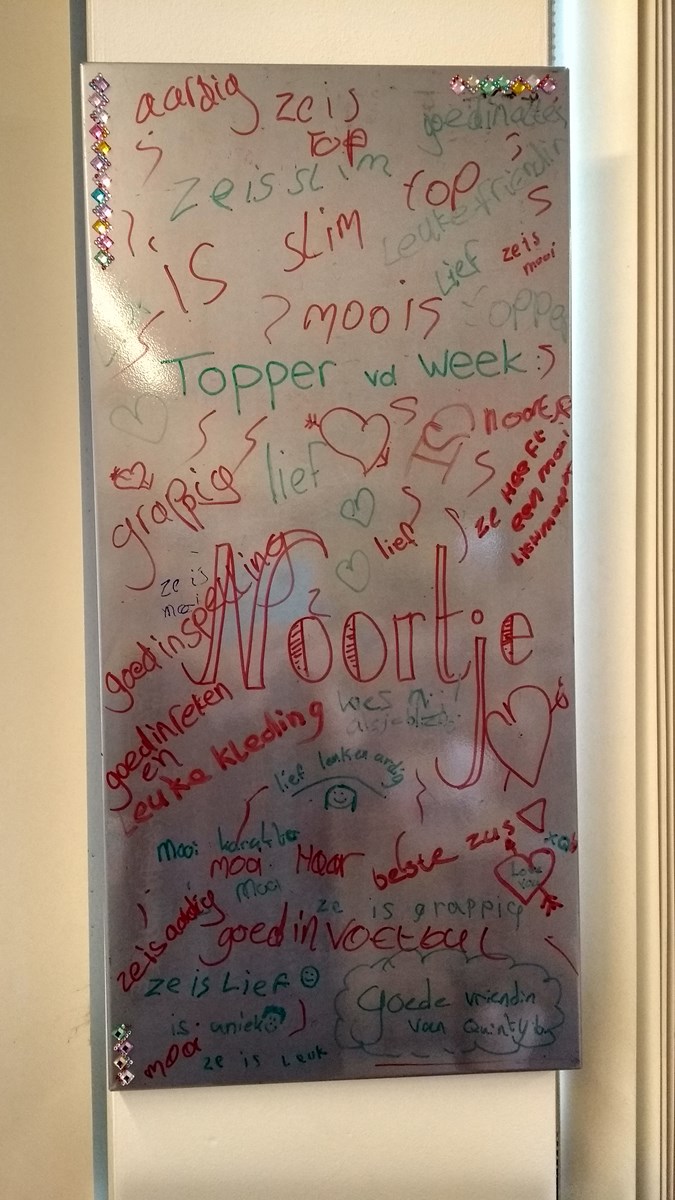 aardig
ze is
Top
ze is slim
top
slim
Leuke vriendin
IS
Lief
ze is
mooi
moois
Topper
Topper vd week
noortje
grappig
lief
ze Heeft
een mooi
lief
ze is
mooi
goed in spelling
Noortje
goed in reken
en
Leuke kleding
lief leuk aardig
Mooi karakter
mooi Haar
beste zus
Mooi
ze is grappig
goed in voetbal
ze is Lief
Goede vriendin
van Quinty
is uniek
mooi
ze is leuk